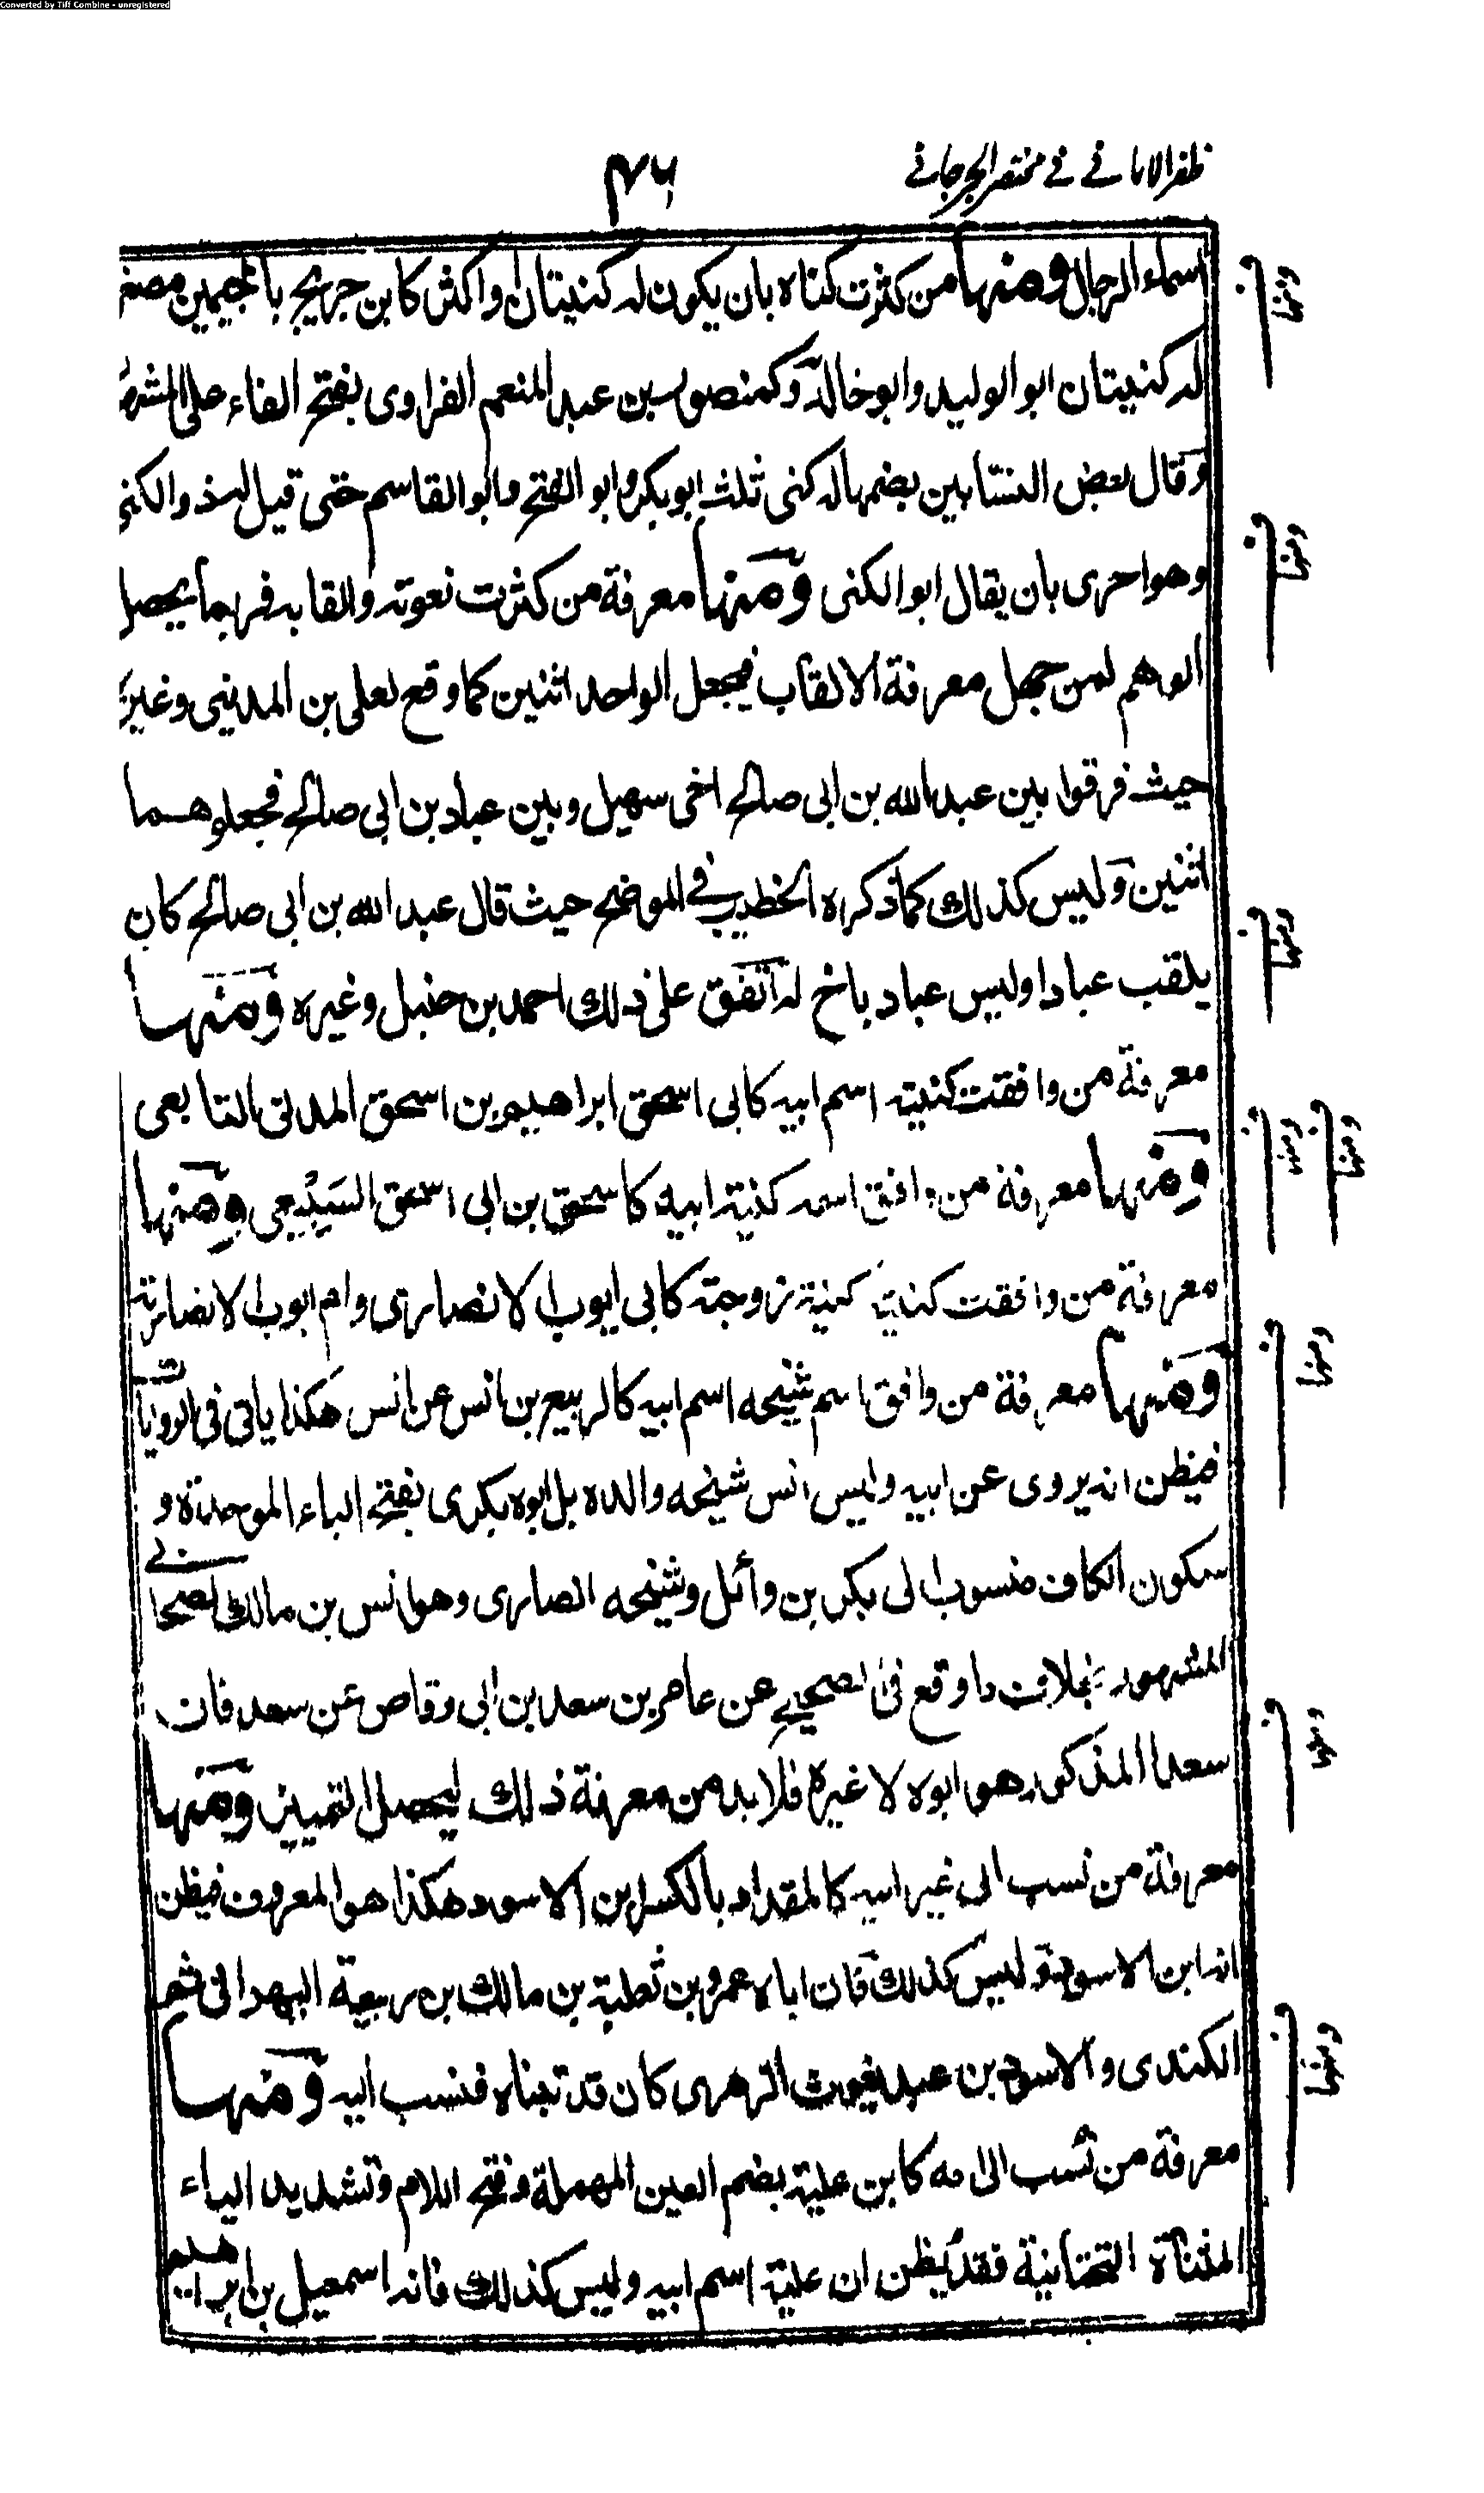 Converted by Tiff Combine - unregistered
ظفر الامانے فے مختصر الجرجانے
اسماء الرجال ومنها من كثرت كناه بان يكون له كنيتان او اكثر كابن جريج بالجيمين مصغر
له كنيتان ابو الوليد وابو خالد وكمنصور بن عبد المنعم الفراوى بفتح الفاء على المشهور
وقال بعض النسابين بضمها له كنى ثلث ابو بكر وابو الفتح وابو القاسم حتى قيل له ذو الكنى
وهو احرى بان يقال ابو الكنى ومنها معرفة من كثرت نعوته والقابه فربما يحصل
الوهم لمن جهل معرفة الالقاب فيجعل الواحد اثنين كما وقع لعلى بن المدينى وغيره
حيث فرقوا بين عبد الله بن ابى صالح اخى سهيل وبين عباد بن ابى صالح فجعلوهما
اثنين وليس كذلك كما ذكره الخطيب فے الموضح حيث قال عبد الله بن ابى صالح كان
يلقب عبادا وليس عباد باخ له اتفق على ذلك احمد بن حنبل وغيره ومنها
معرفة من وافقت كنيته اسم ابيه كابى اسحق ابراهيم بن اسحق المدنى التابعى
ومنها معرفة من وافق اسمه كنية ابيه كاسحق بن ابى اسحق السَبِيْعى ومنها
معرفة من وافقت كنيته كنية زوجته كابى ايوب الانصارى وام ايوب الانصارية
ومنها معرفة من وافق اسم شيخه اسم ابيه كالربيع بن انس عن انس هكذا ياتى فى الروايات
فيظن انه يروى عن ابيه وليس انس شيخه والده بل ابوه بكرى بفتح الباء الموحدة و
سكون الكاف منسوب الى بكر بن وائل وشيخه انصارى وهو انس بن مالك الصحابے
المشهور بخلاف ما وقع فى الصحيح عن عامر بن سعد بن ابى وقاص عن سعد فان
سعدا المذكور هو ابوه لا غيره فلا بد من معرفة ذلك ليحصل التمييز ومنها
معرفة من نسب الى غير ابيه كالمقداد بالكسر بن الاسود هكذا هو المعروف فيظن
انه ابن الاسود وليس كذلك فان اباه عمرو بن ثعلبة بن مالك بن ربيعة البهرانى ثم
الكندى والاسود بن عبد يغوث الزهرى كان قد تبناه فنسب اليه ومنها
معرفة من نسب الى امه كابن علية بضم العين المهملة وفتح اللام وتشديد الياء
المثناة التحتانية فقد يظن ان علية اسم ابيه وليس كذلك فانه اسمعيل بن ابراهيم